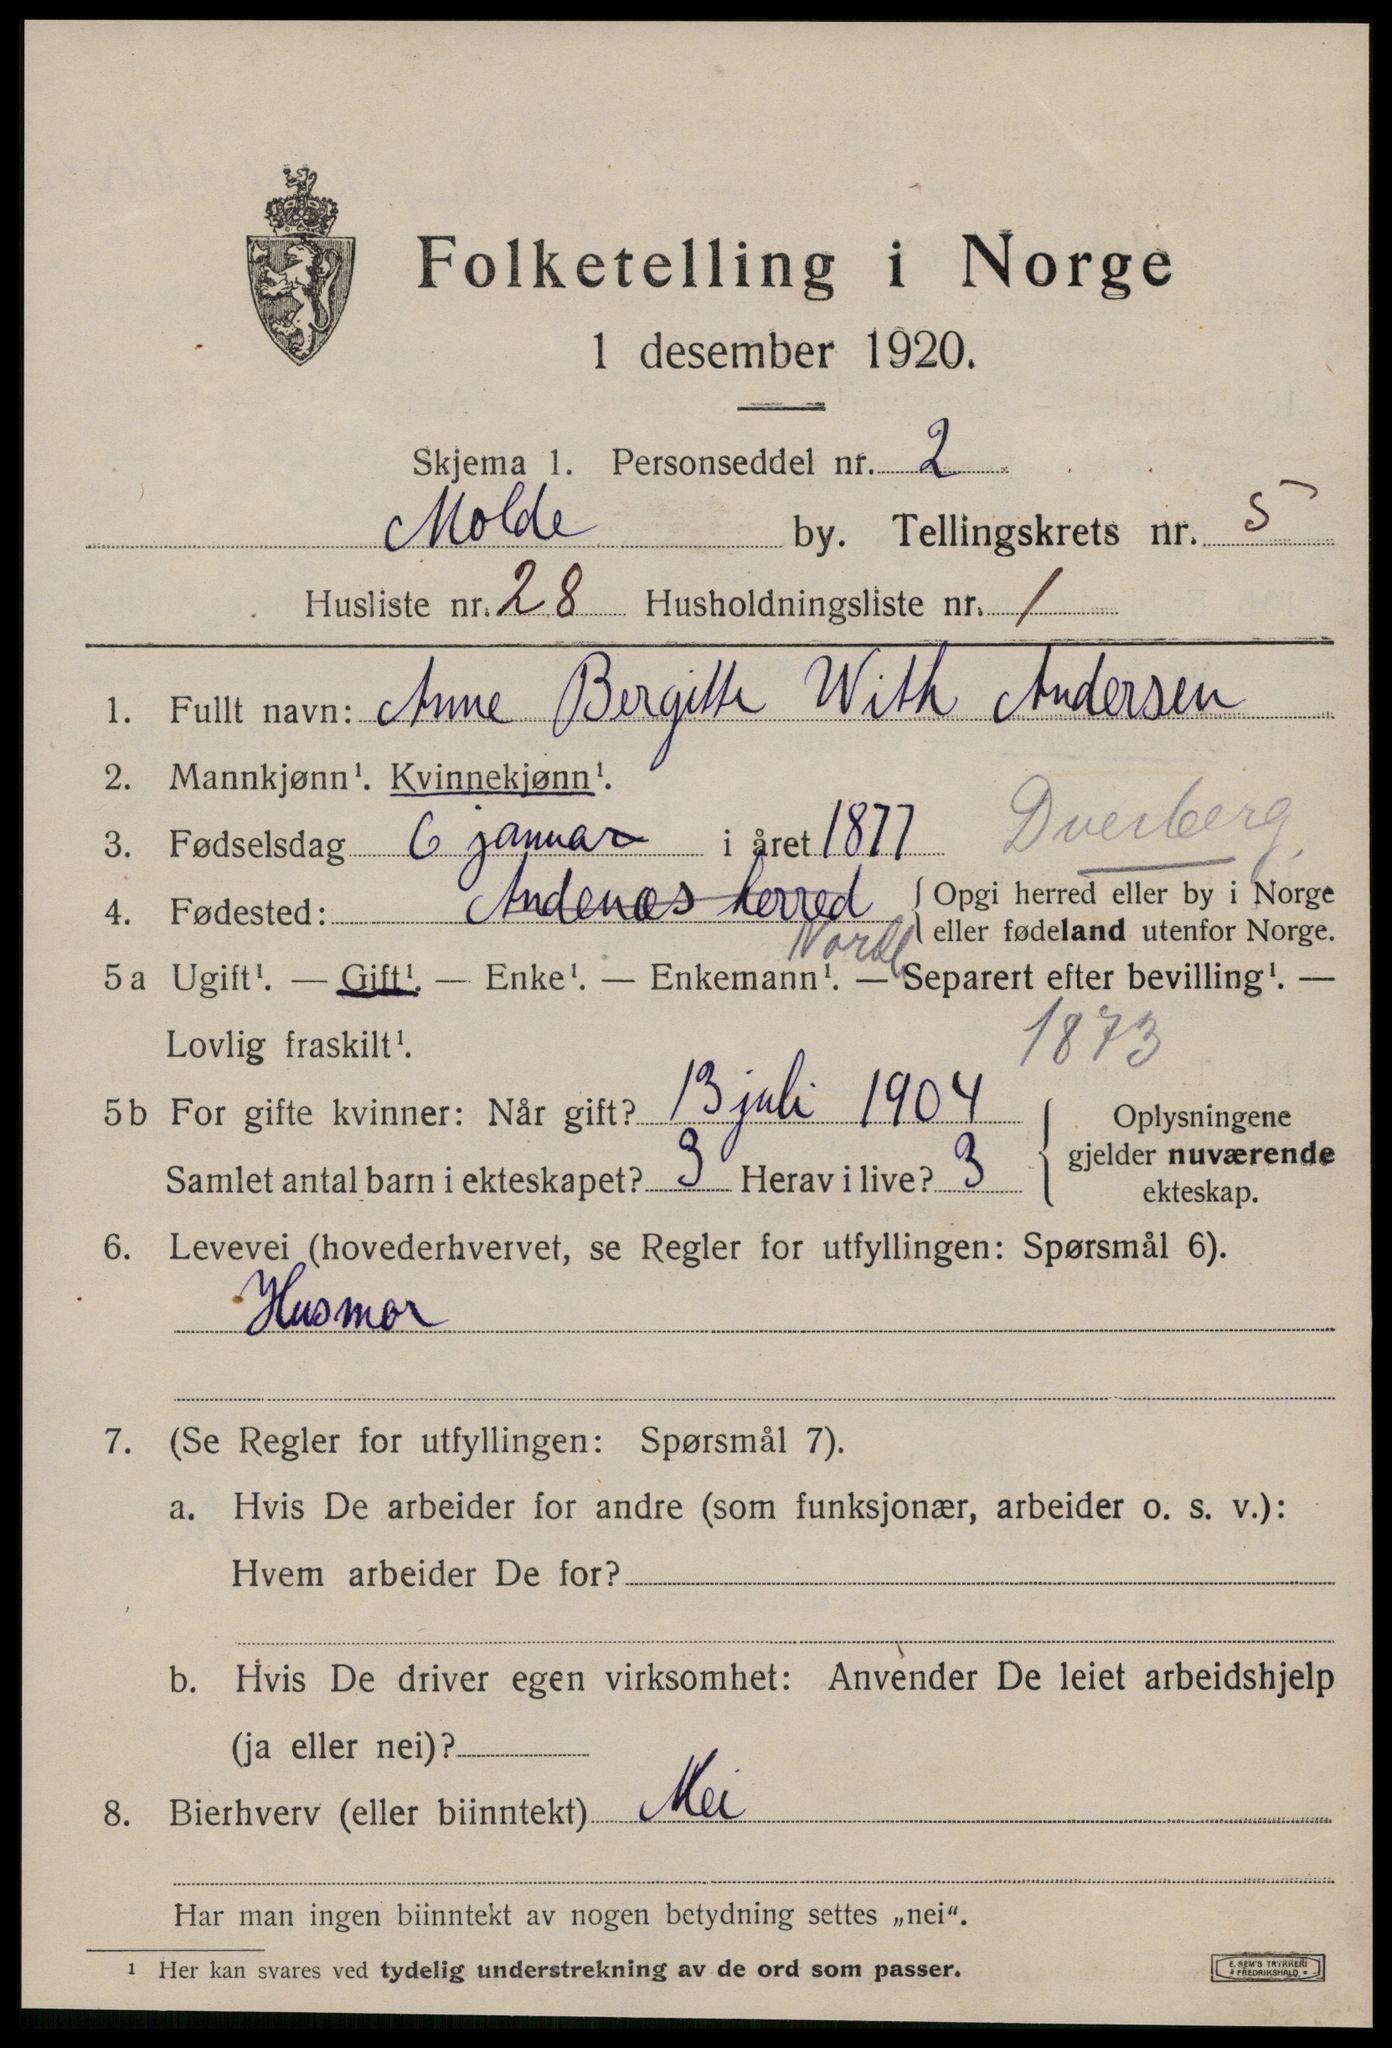 Folketelling i Norge
1 desember 1920.
Skjema 1. Personseddel nr. 2
Molde by. Tellingskrets nr. 5
Husliste nr. 28 Husholdningsliste nr. 1
1. Fullt navn: Anne Bergitte With Andersen
2. Mannkjønn¹. Kvinnekjønn¹.
Dverberg
3. Fødselsdag 6 januar i året 1877
4. Fødested: Andenæs herred { Opgi herred eller by i Norge
eller fødeland utenfor Norge.
Nordl
5a Ugift¹. — Gift¹. — Enke¹. — Enkemann¹. — Separert efter bevilling¹. —
Lovlig fraskilt¹.
1873
5b For gifte kvinner: Når gift? 13 juli 1904 { Oplysningene
gjelder nuværende
Samlet antal barn i ekteskapet? 3 Herav i live? 3
ekteskap.
6. Levevei (hovederhvervet, se Regler for utfyllingen: Spørsmål 6).
Husmor
7. (Se Regler for utfyllingen: Spørsmål 7).
a. Hvis De arbeider for andre (som funksjonær, arbeider o. s. v.):
Hvem arbeider De for?
b. Hvis De driver egen virksomhet: Anvender De leiet arbeidshjelp
(ja eller nei)?
8. Bierhverv (eller biinntekt) Nei
Har man ingen biinntekt av nogen betydning settes „nei“.
¹ Her kan svares ved tydelig understrekning av de ord som passer.
E. SEM'S TRYKKERI
FREDRIKSHALD